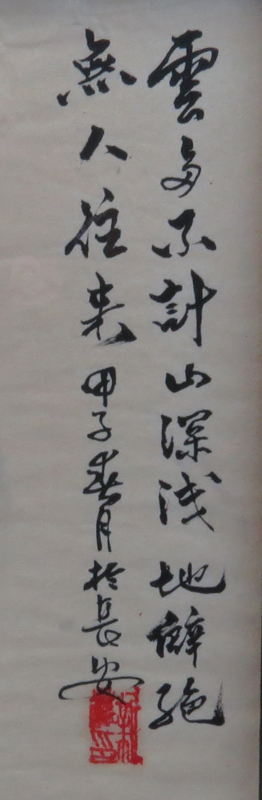 雲多不計山深浅地僻絶
無人往来甲子春月於長安